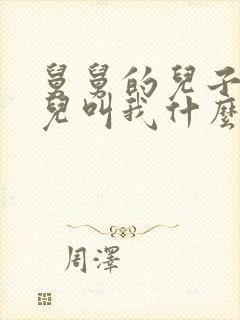 舅舅的兒子
兒叫我什麼
周澤